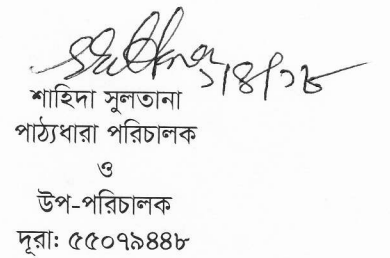 শাহিদা সুলতানা
পাঠ্যধারা পরিচালক
ও
উপ-পরিচালক
দূরা: ৫৫০৭৯৪৪৮